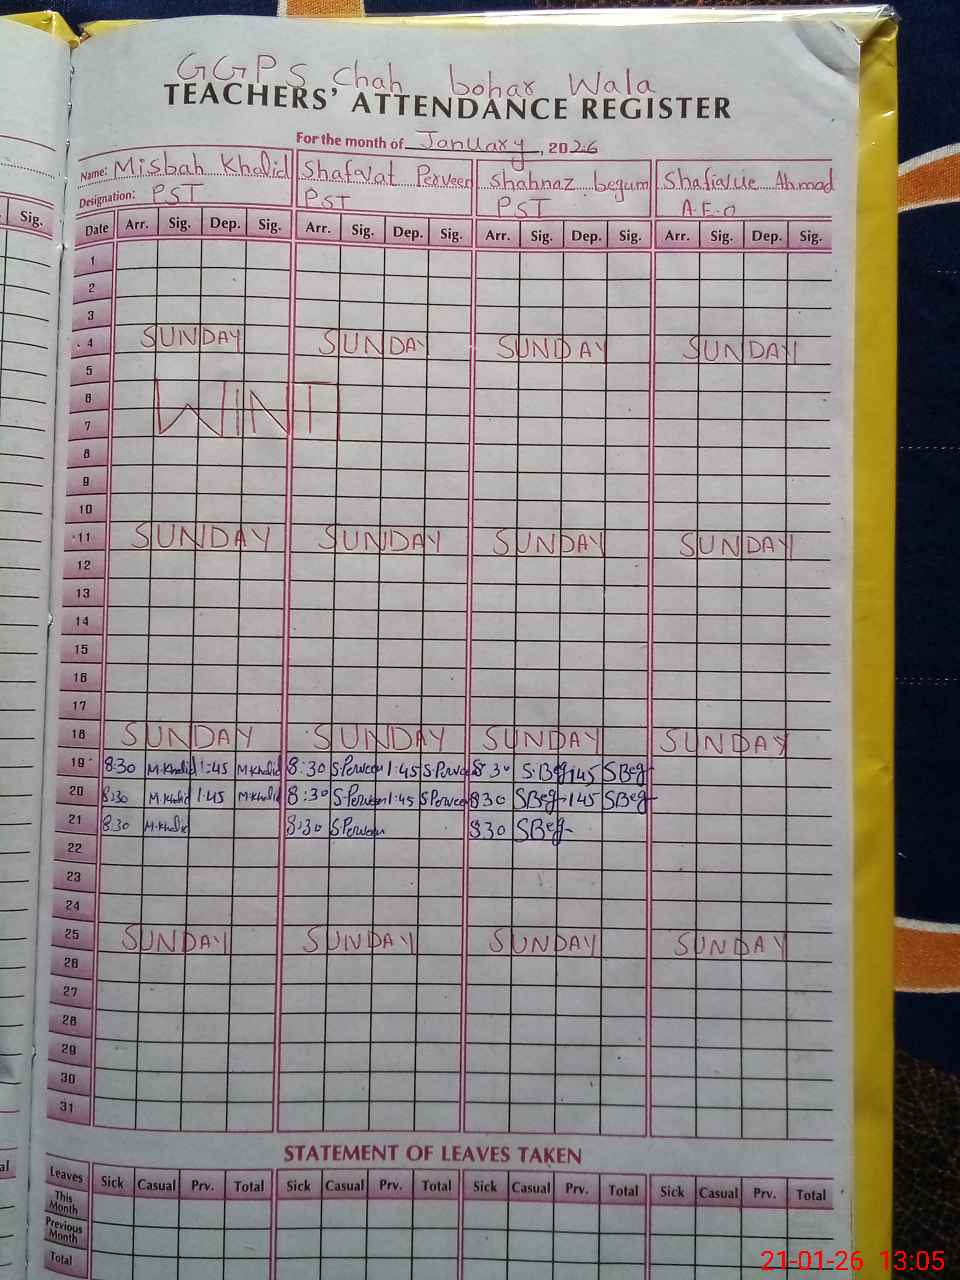 Sig.
al
GGPS Chah bohar Wala
TEACHERS' ATTENDANCE REGISTER
For the month of January, 2026
Name: Misbah Khalid Shafqat Perveen Shahnaz begum Ahmad
Designation: PST PST PST A.E.O
Date Arr. Sig. Dep. Sig. Arr. Sig. Dep. Sig. Arr. Sig. Dep. Sig. Arr. Sig. Dep. Sig.
1
2
3
4 SUNDAY SUNDAY SUNDAY SUNDAY
5
6
WINT
7
8
9
10
11 SUNDAY SUNDAY SUNDAY SUNDAY
12
13
14
15
16
17
18 SUNDAY SUNDAY SUNDAY SUNDAY
19 8:30 M.Khalid 1:45 M.Khalid 8:30 S.Perveen 1:45 S.Perveen 8:30 S.Beg 145 SBeg
20 8:30 M.Khalid 1:45 M.Khalid 8:30 S.Perveen 1:45 S.Perveen 830 SBeg 145 SBeg
21 8:30 M.Khalid 8:30 S.Perveen 830 SBeg
22
23
24
25 SUNDAY SUNDAY SUNDAY SUNDAY
26
27
28
29
30
31
STATEMENT OF LEAVES TAKEN
Leaves Sick Casual Prv. Total Sick Casual Prv. Total Sick Casual Prv. Total Sick Casual Prv. Total
This Month
Previous Month
Total
21-01-26 13:05